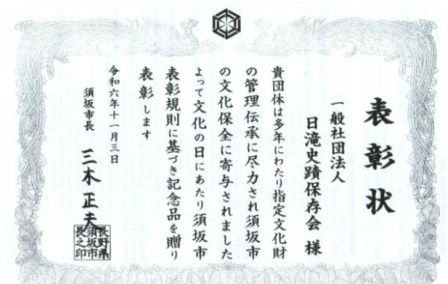 表彰状
一般社団法人
日滝史蹟保存会 様
貴団体は多年にわたり指定文化財
の管理伝承に尽力され須坂市
の文化保全に寄与されました
よって文化の日にあたり須坂市
表彰規則に基づき記念品を贈り
表彰します
令和六年十一月三日
須坂市長 三木正夫
長野県
須坂市
長之印